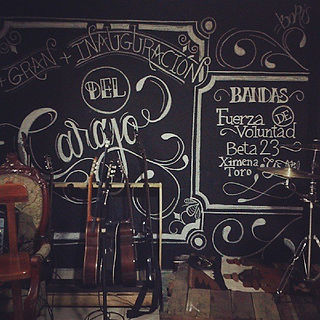 +GRAN + INAUGURACIÓN
DEL
Carajo
BANDAS
Fuerza DE
Voluntad
Beta 23
Ximena
Toro